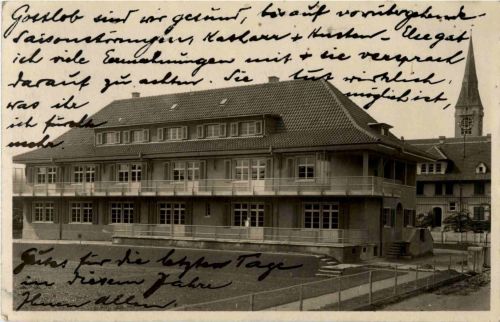 Gottlob sind wir gesund, bis auf vorübergehende
Saisonstörungen, Katharr + Husten –
ich viele Ermahnungen mit + sie versprach
darauf zu achten. Sie tut wirklich,
was ihr möglich ist,
ich fürchte
mehr.
Gutes für die letzten Tage
in diesem Jahre
Ihnen Allen